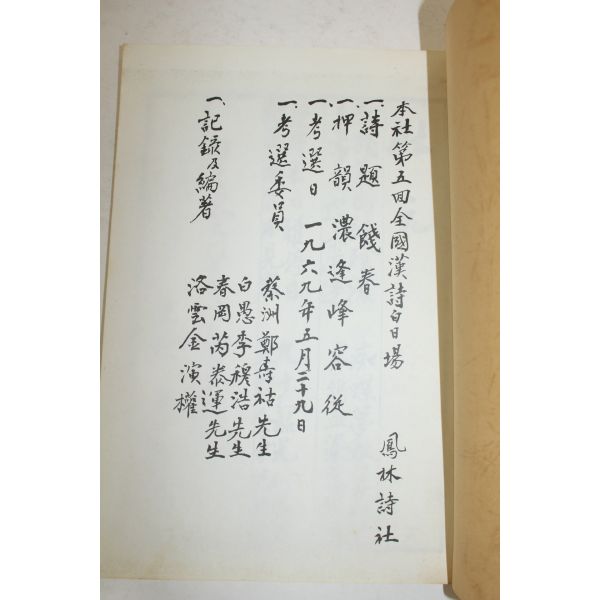 本社第五回全國漢詩白日場
鳳林詩社
一、詩題 餞春
一、押韻 濃逢峰容從
一、考選日 一九六九年五月二十九日
一、考選委員
蔡洲鄭壽祜先生
白愚李穆浩先生
春岡芮泰運先生
一、記錄及編著
洛雲金演權